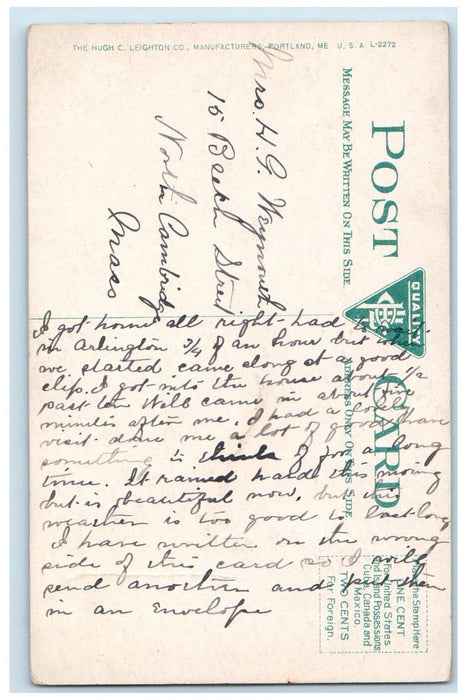 THE HUGH C. LEIGHTON CO., MANUFACTURERS, PORTLAND, ME. U. S. A. L-2272
POST CARD
MESSAGE MAY BE WRITTEN ON THIS SIDE
ADDRESS ONLY ON THIS SIDE
QUALITY
Place the Stamp Here
ONE CENT
For United States
and Island Possessions
Cuba, Canada and
Mexico.
TWO CENTS
For Foreign.
Mrs. H. G. Weymouth
15 Beech Street
North Cambridge
Mass
I got home all right - had to wait
in Arlington 3/4 of an hour but when
we started came along at a good
clip. I got into the house about 1/2
past ten Will came in about five
minutes after me. I had a lovely
visit - done me a lot of good have
something to think of for a long
time. It rained hard this morning
but is beautiful now, but this
weather is too good to last long
I have written on the wrong
side of this card so I will
send another and put them
in an envelope